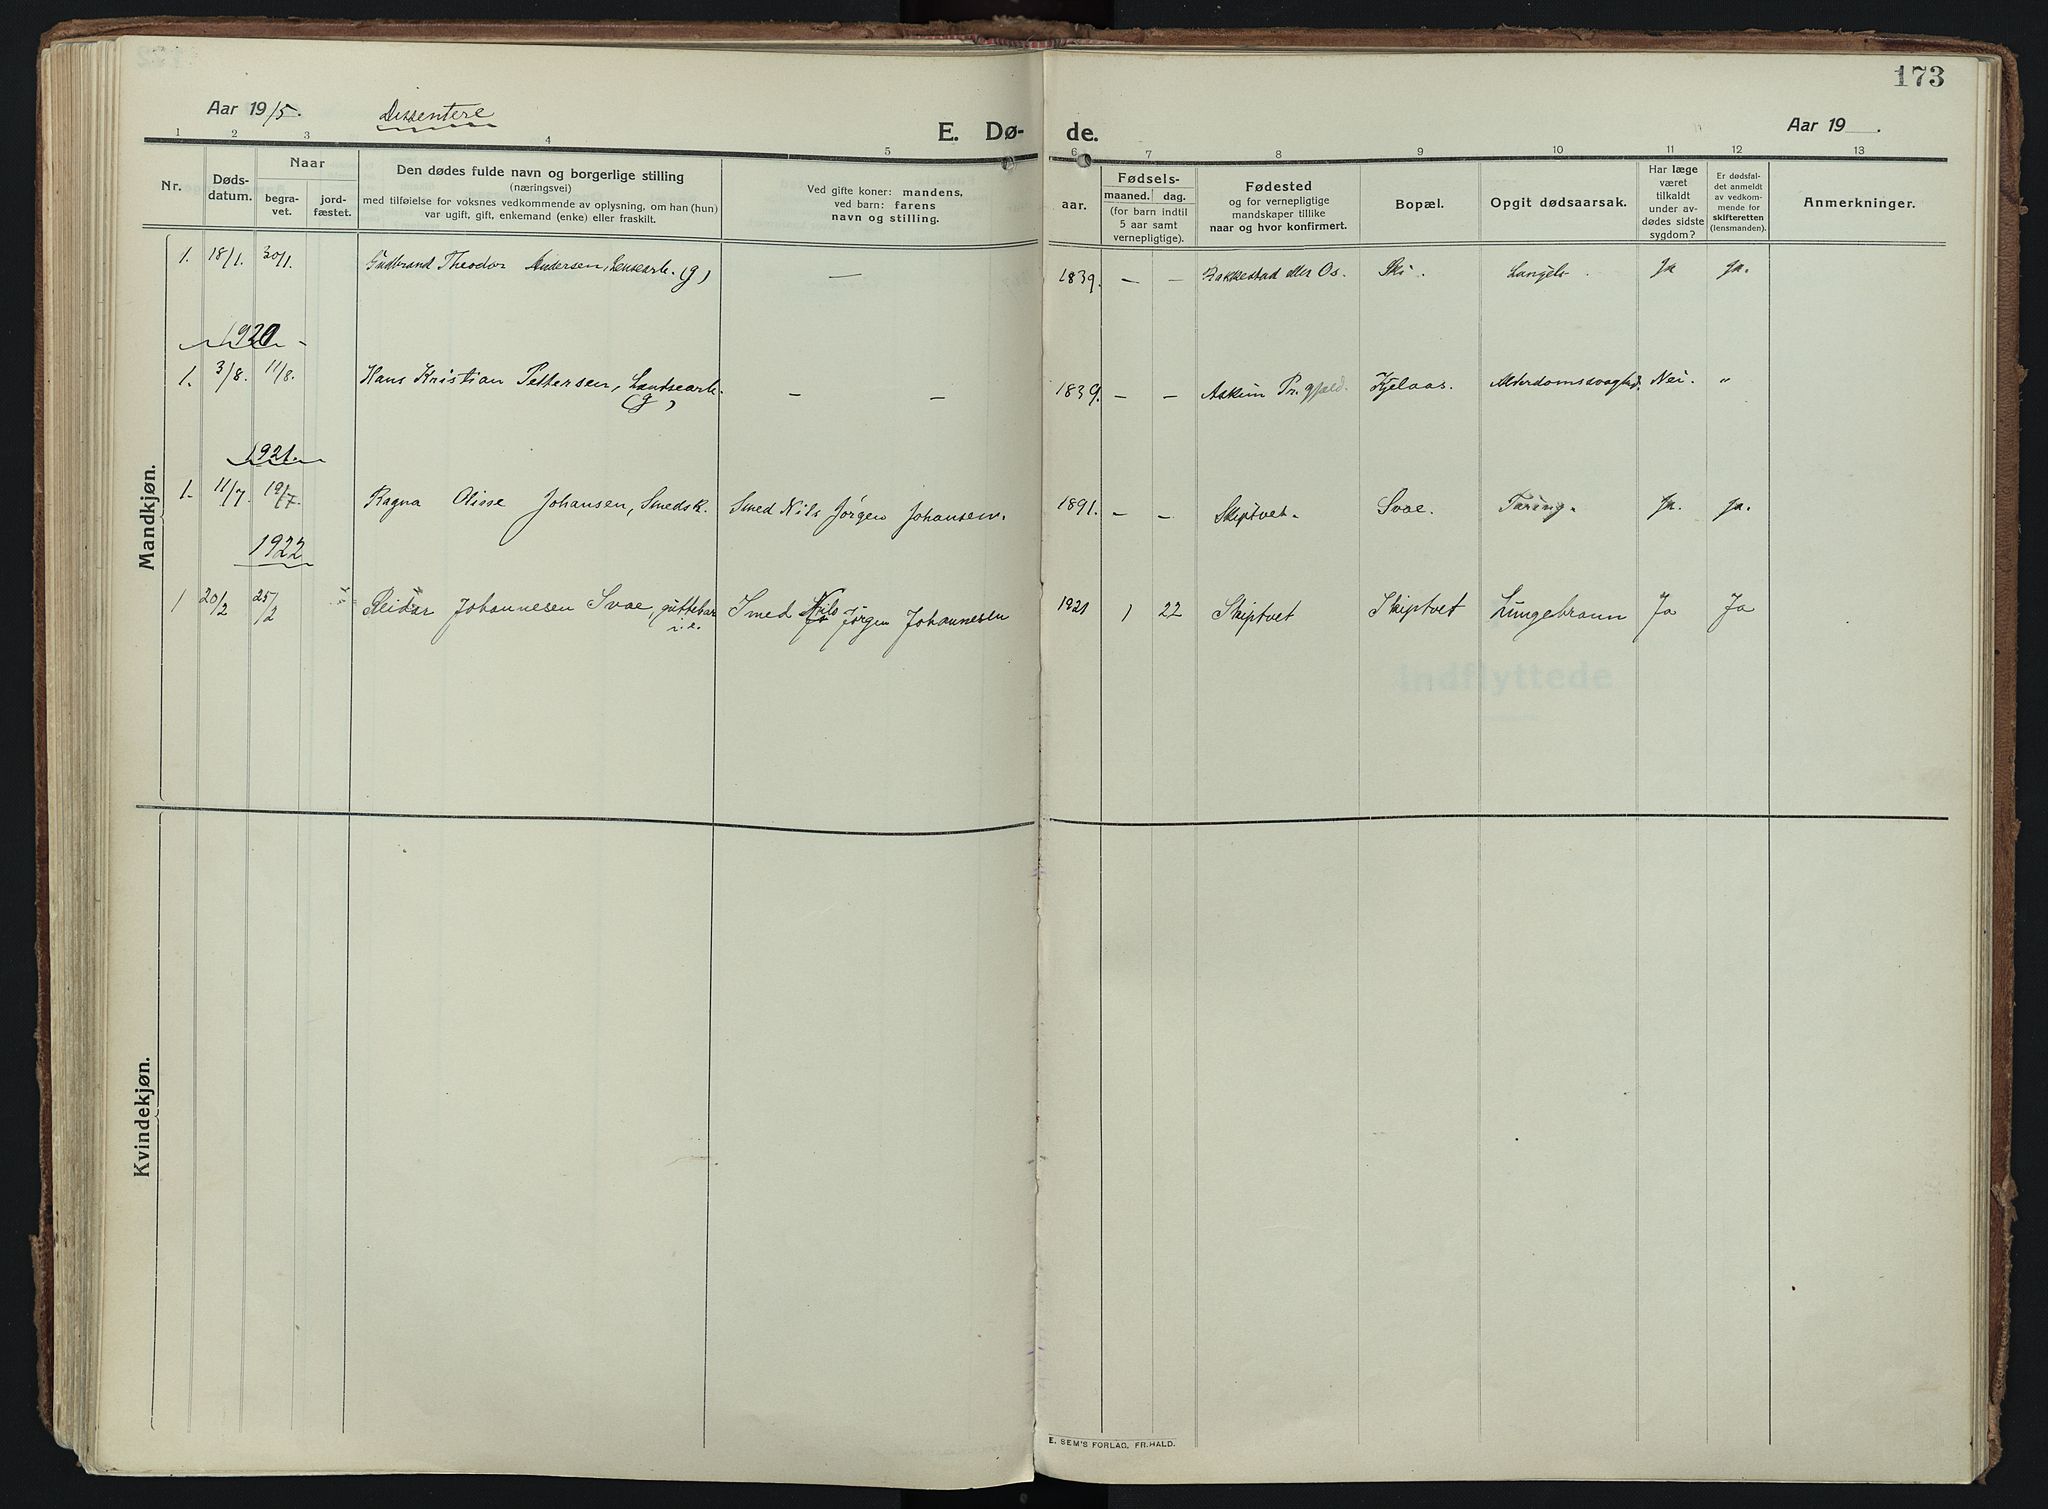 173
Aar 1915.
Dissentere
E. Dø- de.
Aar 19 .
1 2 3 4 5 6 7 8 9 10 11 12 13
Nr.
Døds-
datum.
Naar
begra-
vet.
jord-
fæstet.
Den dødes fulde navn og borgerlige stilling
(næringsvei)
med tilføielse for voksnes vedkommende av oplysning, om han (hun)
var ugift, gift, enkemand (enke) eller fraskilt.
Ved gifte koner: mandens,
ved barn: farens
navn og stilling.
aar.
Fødsels-
maaned. dag.
(for barn indtil
5 aar samt
vernepligtige).
Fødested
og for vernepligtige
mandskaper tillike
naar og hvor konfirmert.
Bopæl.
Opgit dødsaarsak.
Har læge
været
tilkaldt
under av-
dødes sidste
sygdom?
Er dødsfal-
det anmeldt
av vedkom-
mende for
skifteretten
(lensmanden).
Anmerkninger.
Mandkjøn.
1. 18/1. 30/1. Gudbrand Theodor Andersen, (g) — 1839. — — Rakkestad eller Os. Ski. Ja Ja.
1920
1. 3/8. 11/8. Hans Kristian Pettersen, (g) — — 1839. — — Askim Pr.gjæld. Kjelaas. Nei. "
1921.
1. 11/7. 19/7. Ragna Olisse Johansen, Smedsk. Smed Nils Jørgen Johansen. 1891. — — Skiptvet. Svae. Tæring. Ja. Ja.
1922
1 20/2 25/2 Reidar Johannesen Svae, guttebar Smed Nils Jørgen Johannesen 1921 1 22 Skiptvet Skiptvet Ja Ja
i.e.
Indflyttede
Kvindekjøn.
E. SEM'S FORLAG, FR.HALD.